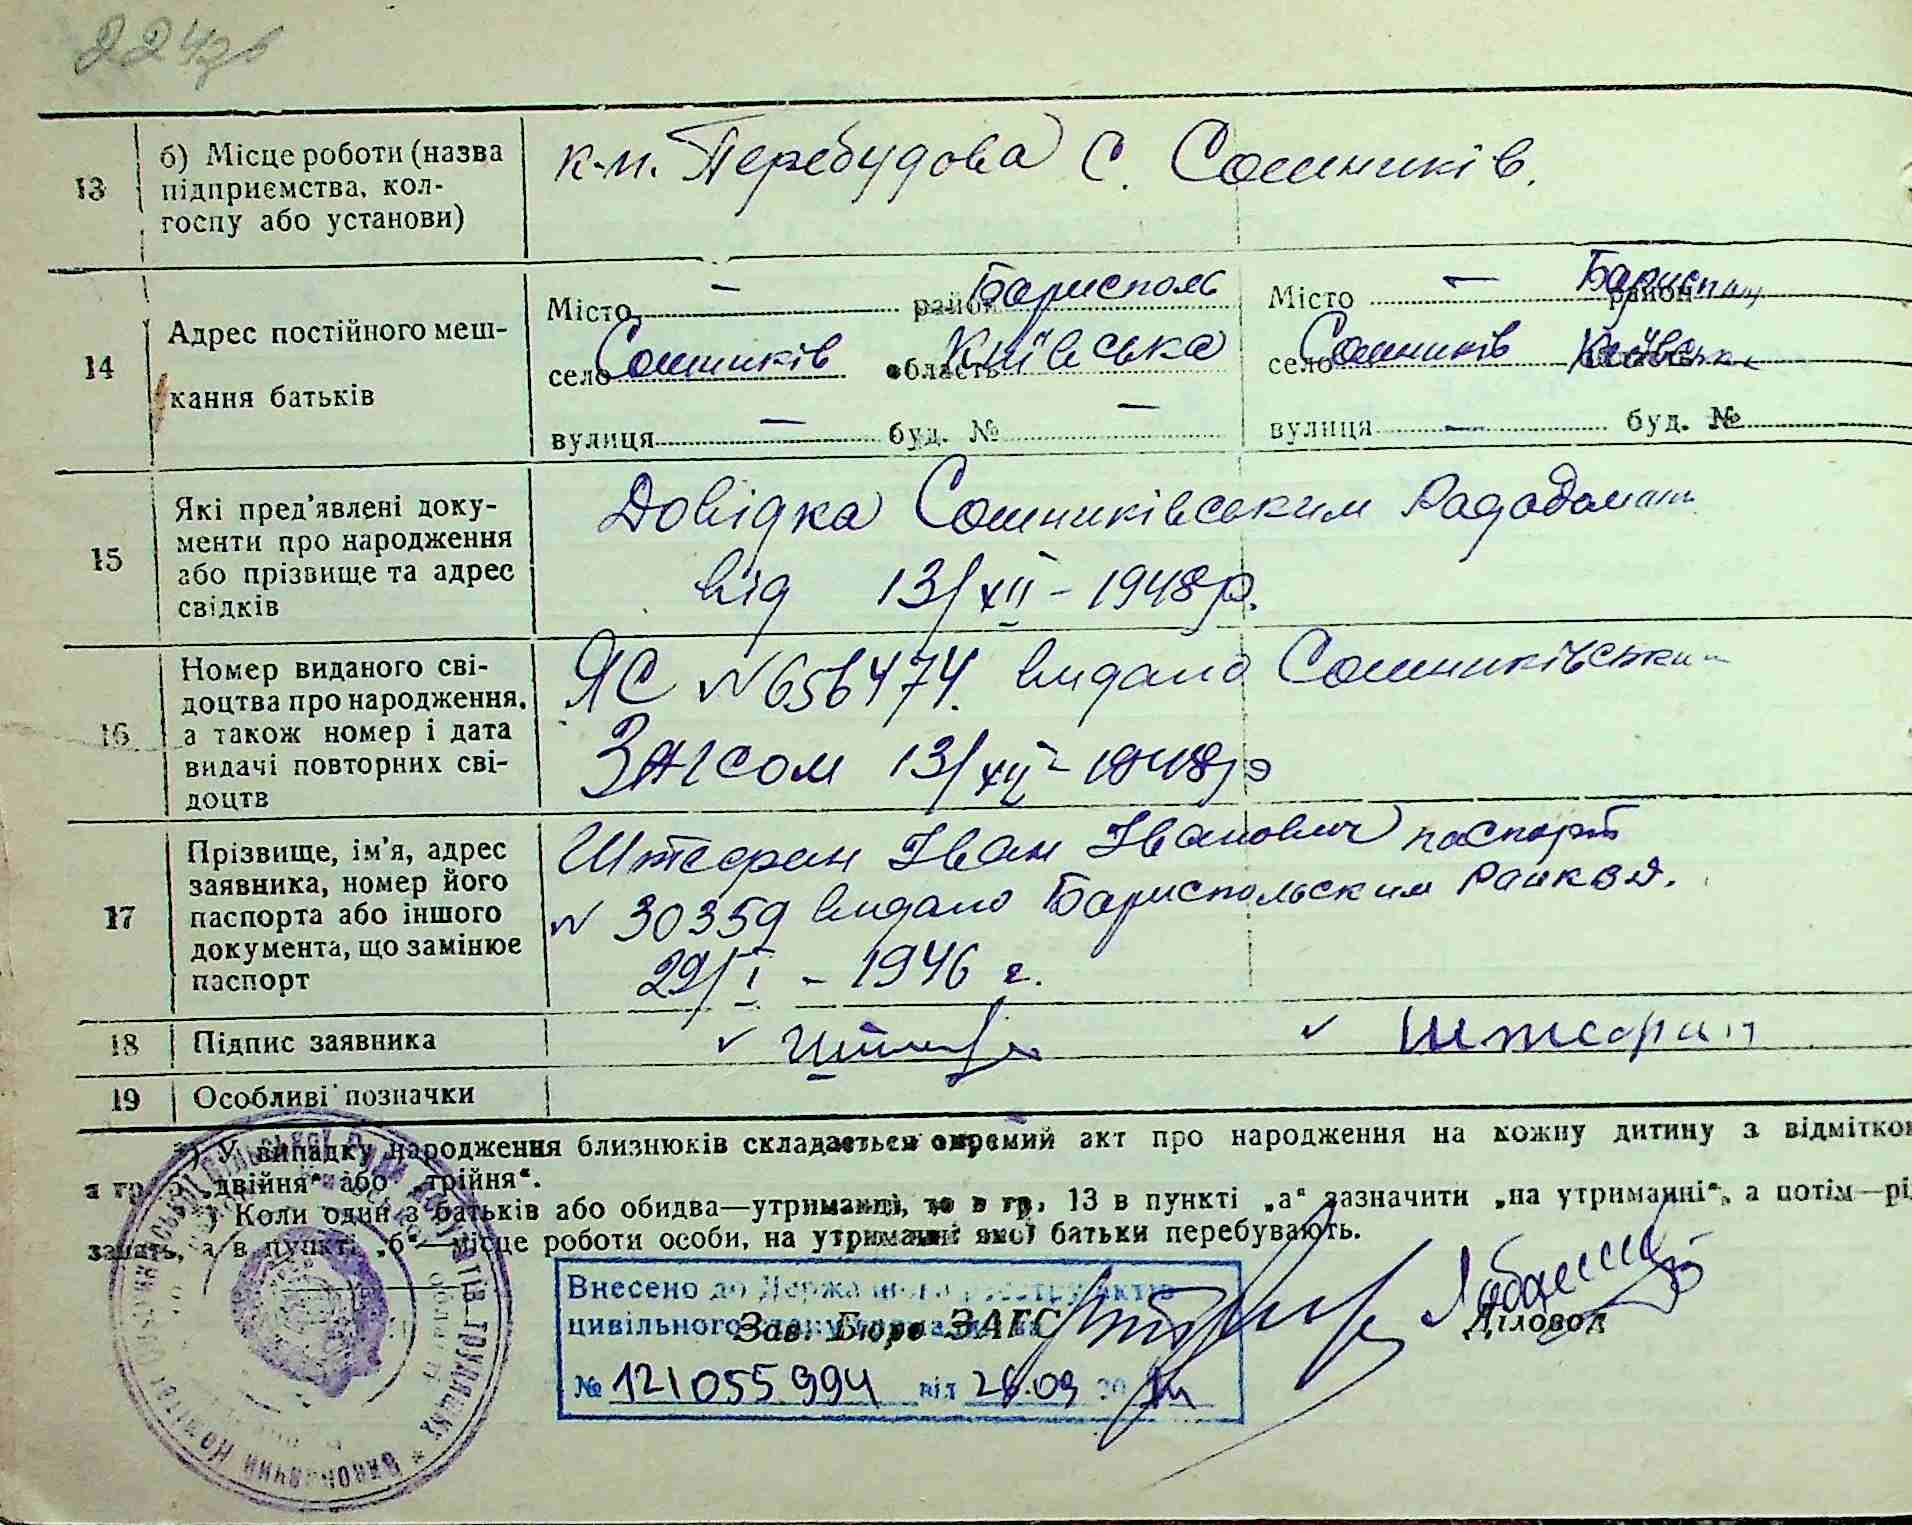 224зв
13 б) Місце роботи (назва підприємства, колгоспу або установи) к-п. Перебудова С. Сошників.
14 Адрес постійного мешкання батьків
Місто — район Барисполь Місто — район Бариспіль
село Сошників область Київська село Сошників Київська
вулиця — буд. № — вулиця — буд. №
15 Які пред'явлені документи про народження або прізвище та адрес свідків
Довідка Сошниківським
від 13/XII – 1948 р.
16 Номер виданого свідоцтва про народження, а також номер і дата видачі повторних свідоцтв
ЯС № 656474. видано Сошниківським
ЗАГСом 13/XII – 1948 р
17 Прізвище, ім'я, адрес заявника, номер його паспорта або іншого документа, що замінює паспорт
Іван Іванович паспорт
№ 30359 видано Бариспольским
29/I – 1946 г.
18 Підпис заявника
19 Особливі позначки
*) У випадку народження близнюків складається окремий акт про народження на кожну дитину з відміткою
в гр. „двійня“ або „трійня“.
Коли один з батьків або обидва—утриманці, то в гр. 13 в пункті „а“ зазначити „на утриманні“, а потім—рід
занять, а в пункті „б“—місце роботи особи, на утриманні якої батьки перебувають.
Внесено до Державного реєстру актів
цивільного стану громадян
Зав. Бюро ЗАГС Діловод
№ 121055994 від 26.09 20